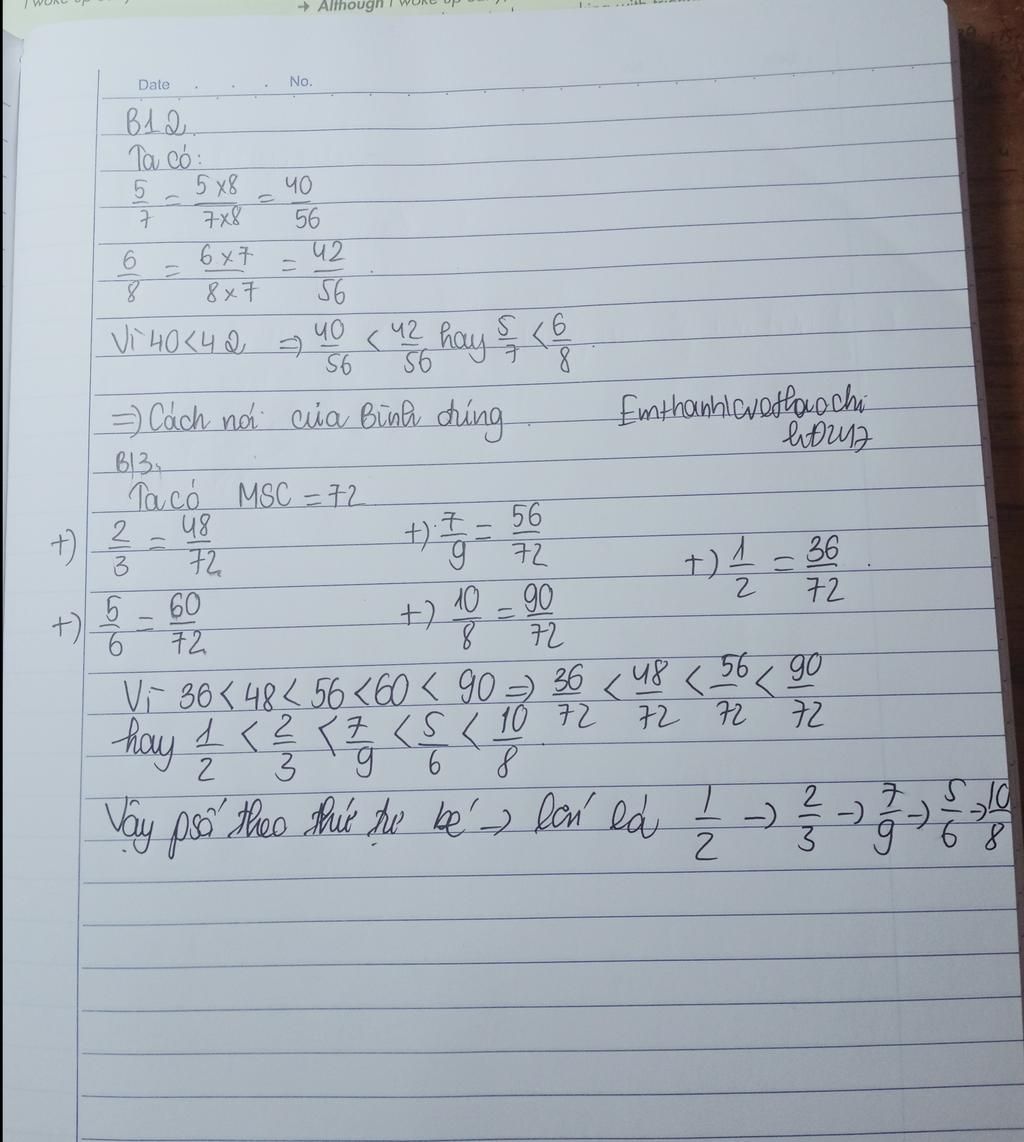 → Although I woke up
Date . . . No.
B12
Ta có:
5/7 = 5×8/7×8 = 40/56
6/8 = 6×7/8×7 = 42/56.
Vì 40<42 => 40/56 < 42/56 hay 5/7 < 6/8.
=) Cách nói của Bình đúng.
B13,
Ta có MSC = 72
+) 2/3 = 48/72 +) 7/9 = 56/72 +) 1/2 = 36/72.
+) 5/6 = 60/72 +) 10/8 = 90/72
Vì 36<48<56<60<90 => 36/72 < 48/72 < 56/72 < 90/72
hay 1/2 < 2/3 < 7/9 < 5/6 < 10/8.
Vậy psố theo thứ tự bé → lớn là 1/2 → 2/3 → 7/9 → 5/6 → 10/8